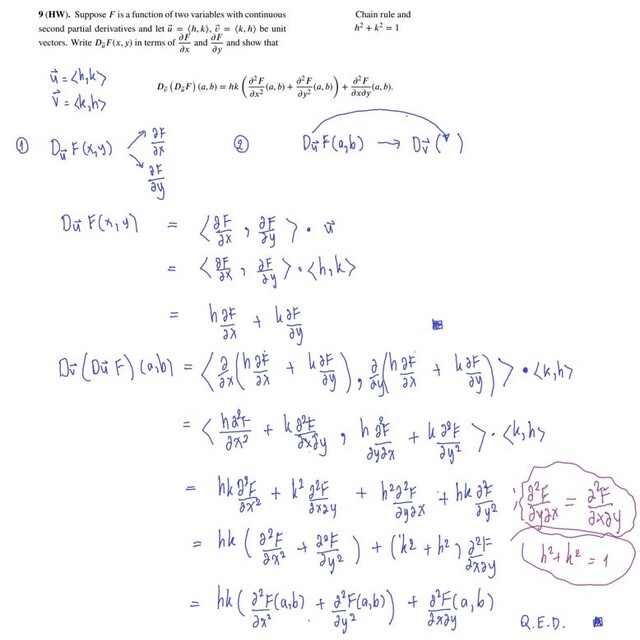 9 (HW). Suppose F is a function of two variables with continuous
second partial derivatives and let u⃗ = ⟨h, k⟩, v⃗ = ⟨k, h⟩ be unit
vectors. Write D_u⃗ F(x, y) in terms of ∂F/∂x and ∂F/∂y and show that
Chain rule and
h² + k² = 1
D_v⃗ (D_u⃗ F) (a, b) = hk (∂²F/∂x² (a, b) + ∂²F/∂y² (a, b)) + ∂²F/∂x∂y (a, b).
u⃗ = <h,k>
v⃗ = <k,h>
① D_u⃗ F(x,y) ∂F/∂x ∂F/∂y
② D_u⃗ F(a,b) → D_v⃗ ( )
D_u⃗ F(x,y) = <∂F/∂x , ∂F/∂y> • u⃗
= <∂F/∂x , ∂F/∂y> • <h,k>
= h ∂F/∂x + k ∂F/∂y
D_v⃗ (D_u⃗ F) (a,b) = <∂/∂x (h ∂F/∂x + k ∂F/∂y), ∂/∂y (h ∂F/∂x + k ∂F/∂y)> • <k,h>
= <h∂²F/∂x² + k ∂²F/∂x∂y , h ∂²F/∂y∂x + k ∂²F/∂y²> • <k,h>
= hk ∂²F/∂x² + k² ∂²F/∂x∂y + h² ∂²F/∂y∂x + hk ∂²F/∂y² ; ∂²F/∂y∂x = ∂²F/∂x∂y
= hk (∂²F/∂x² + ∂²F/∂y²) + (k² + h²) ∂²F/∂x∂y
h² + k² = 1
= hk (∂²F(a,b)/∂x² + ∂²F(a,b)/∂y²) + ∂²F(a,b)/∂x∂y
Q.E.D.